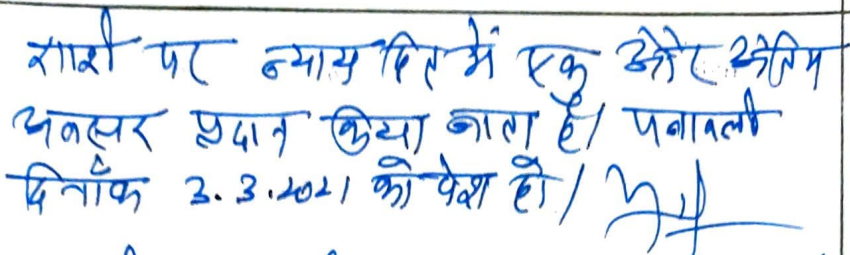 राशी पर न्याय हित में एक और अंतिम
अवसर प्रदान किया जाता है। पत्रावली
दिनाँक 3.3.2021 को पेश हो।